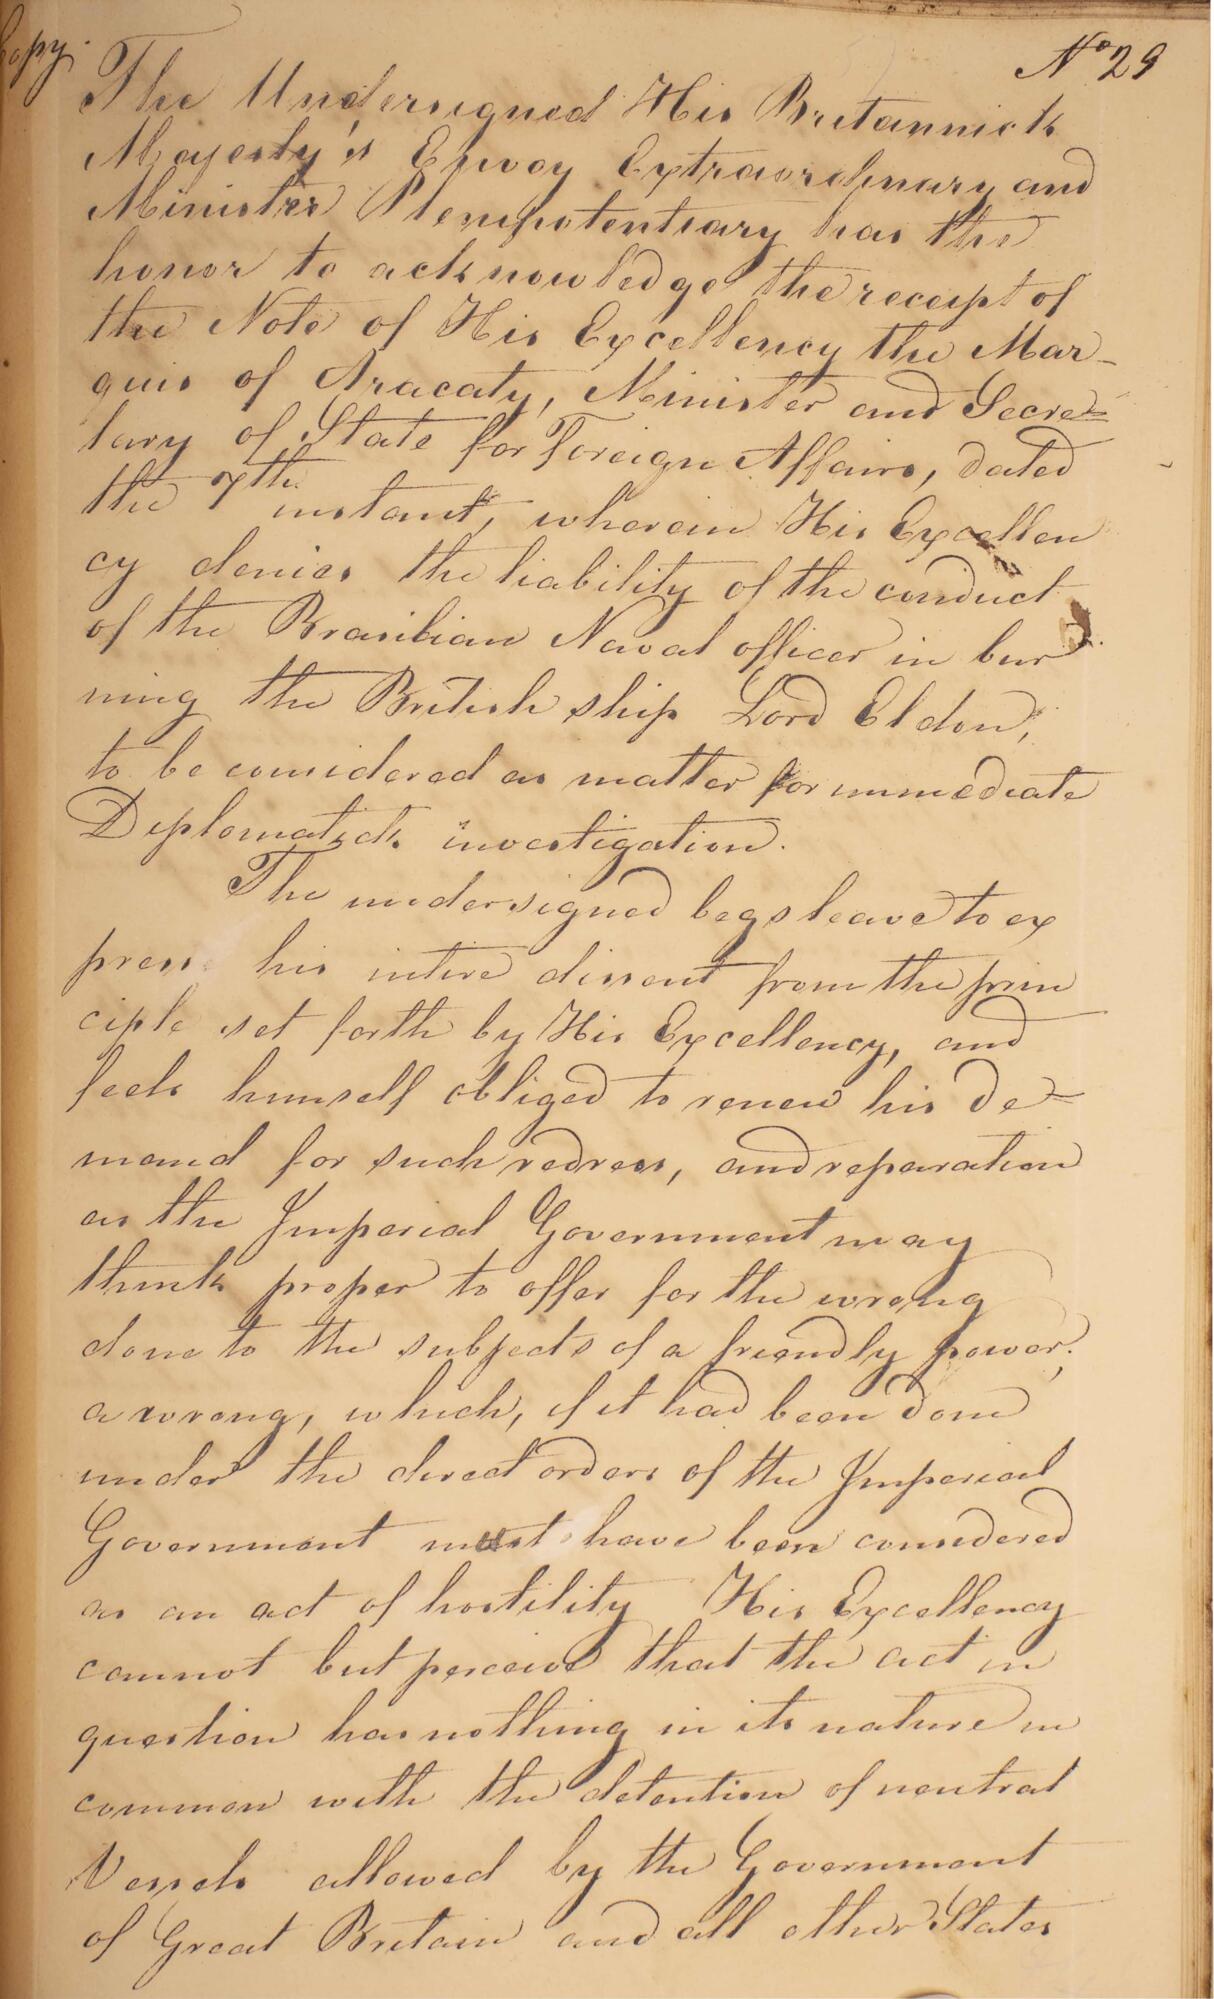 Copy.
No 29
The Undersigned His Britannick
Majesty's Envoy Extraordinary and
Minister Plenipotentiary has the
honor to acknowledge the receipt of
the Note of His Excellency the Mar-
quis of Aracaty, Minister and Secre=
tary of State for Foreign Affairs, dated
the 7th instant, wherein His Excellen
cy denies the liability of the conduct
of the Brasilian Naval officer in bur
ning the British ship Lord Eldon,
to be considered as matter for immediate
Diplomatick investigation.
The undersigned begs leave to ex
press his intire dissent from the prin
ciple set forth by His Excellency, and
feels himself obliged to renew his de=
mand for such redress, and reparation
as the Imperial Government may
think proper to offer for the wrong
done to the subjects of a friendly power;
a wrong, which, if it had been done
under the direct orders of the Imperial
Government must have been considered
as an act of hostility His Excellency
cannot but perceive that the act in
question has nothing in its nature in
common with the detention of neutral
Vessels allowed by the Government
of Great Britain and all other States